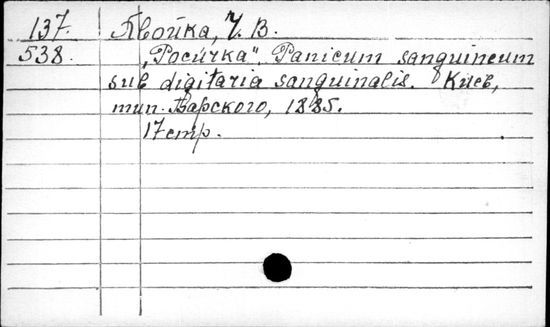 137. Явойка, Ч. В.
538. „Росичка“. Panicum sanguineum
sub digitaria sanguinalis. Киев,
тип. Барского, 1885.
17 стр.